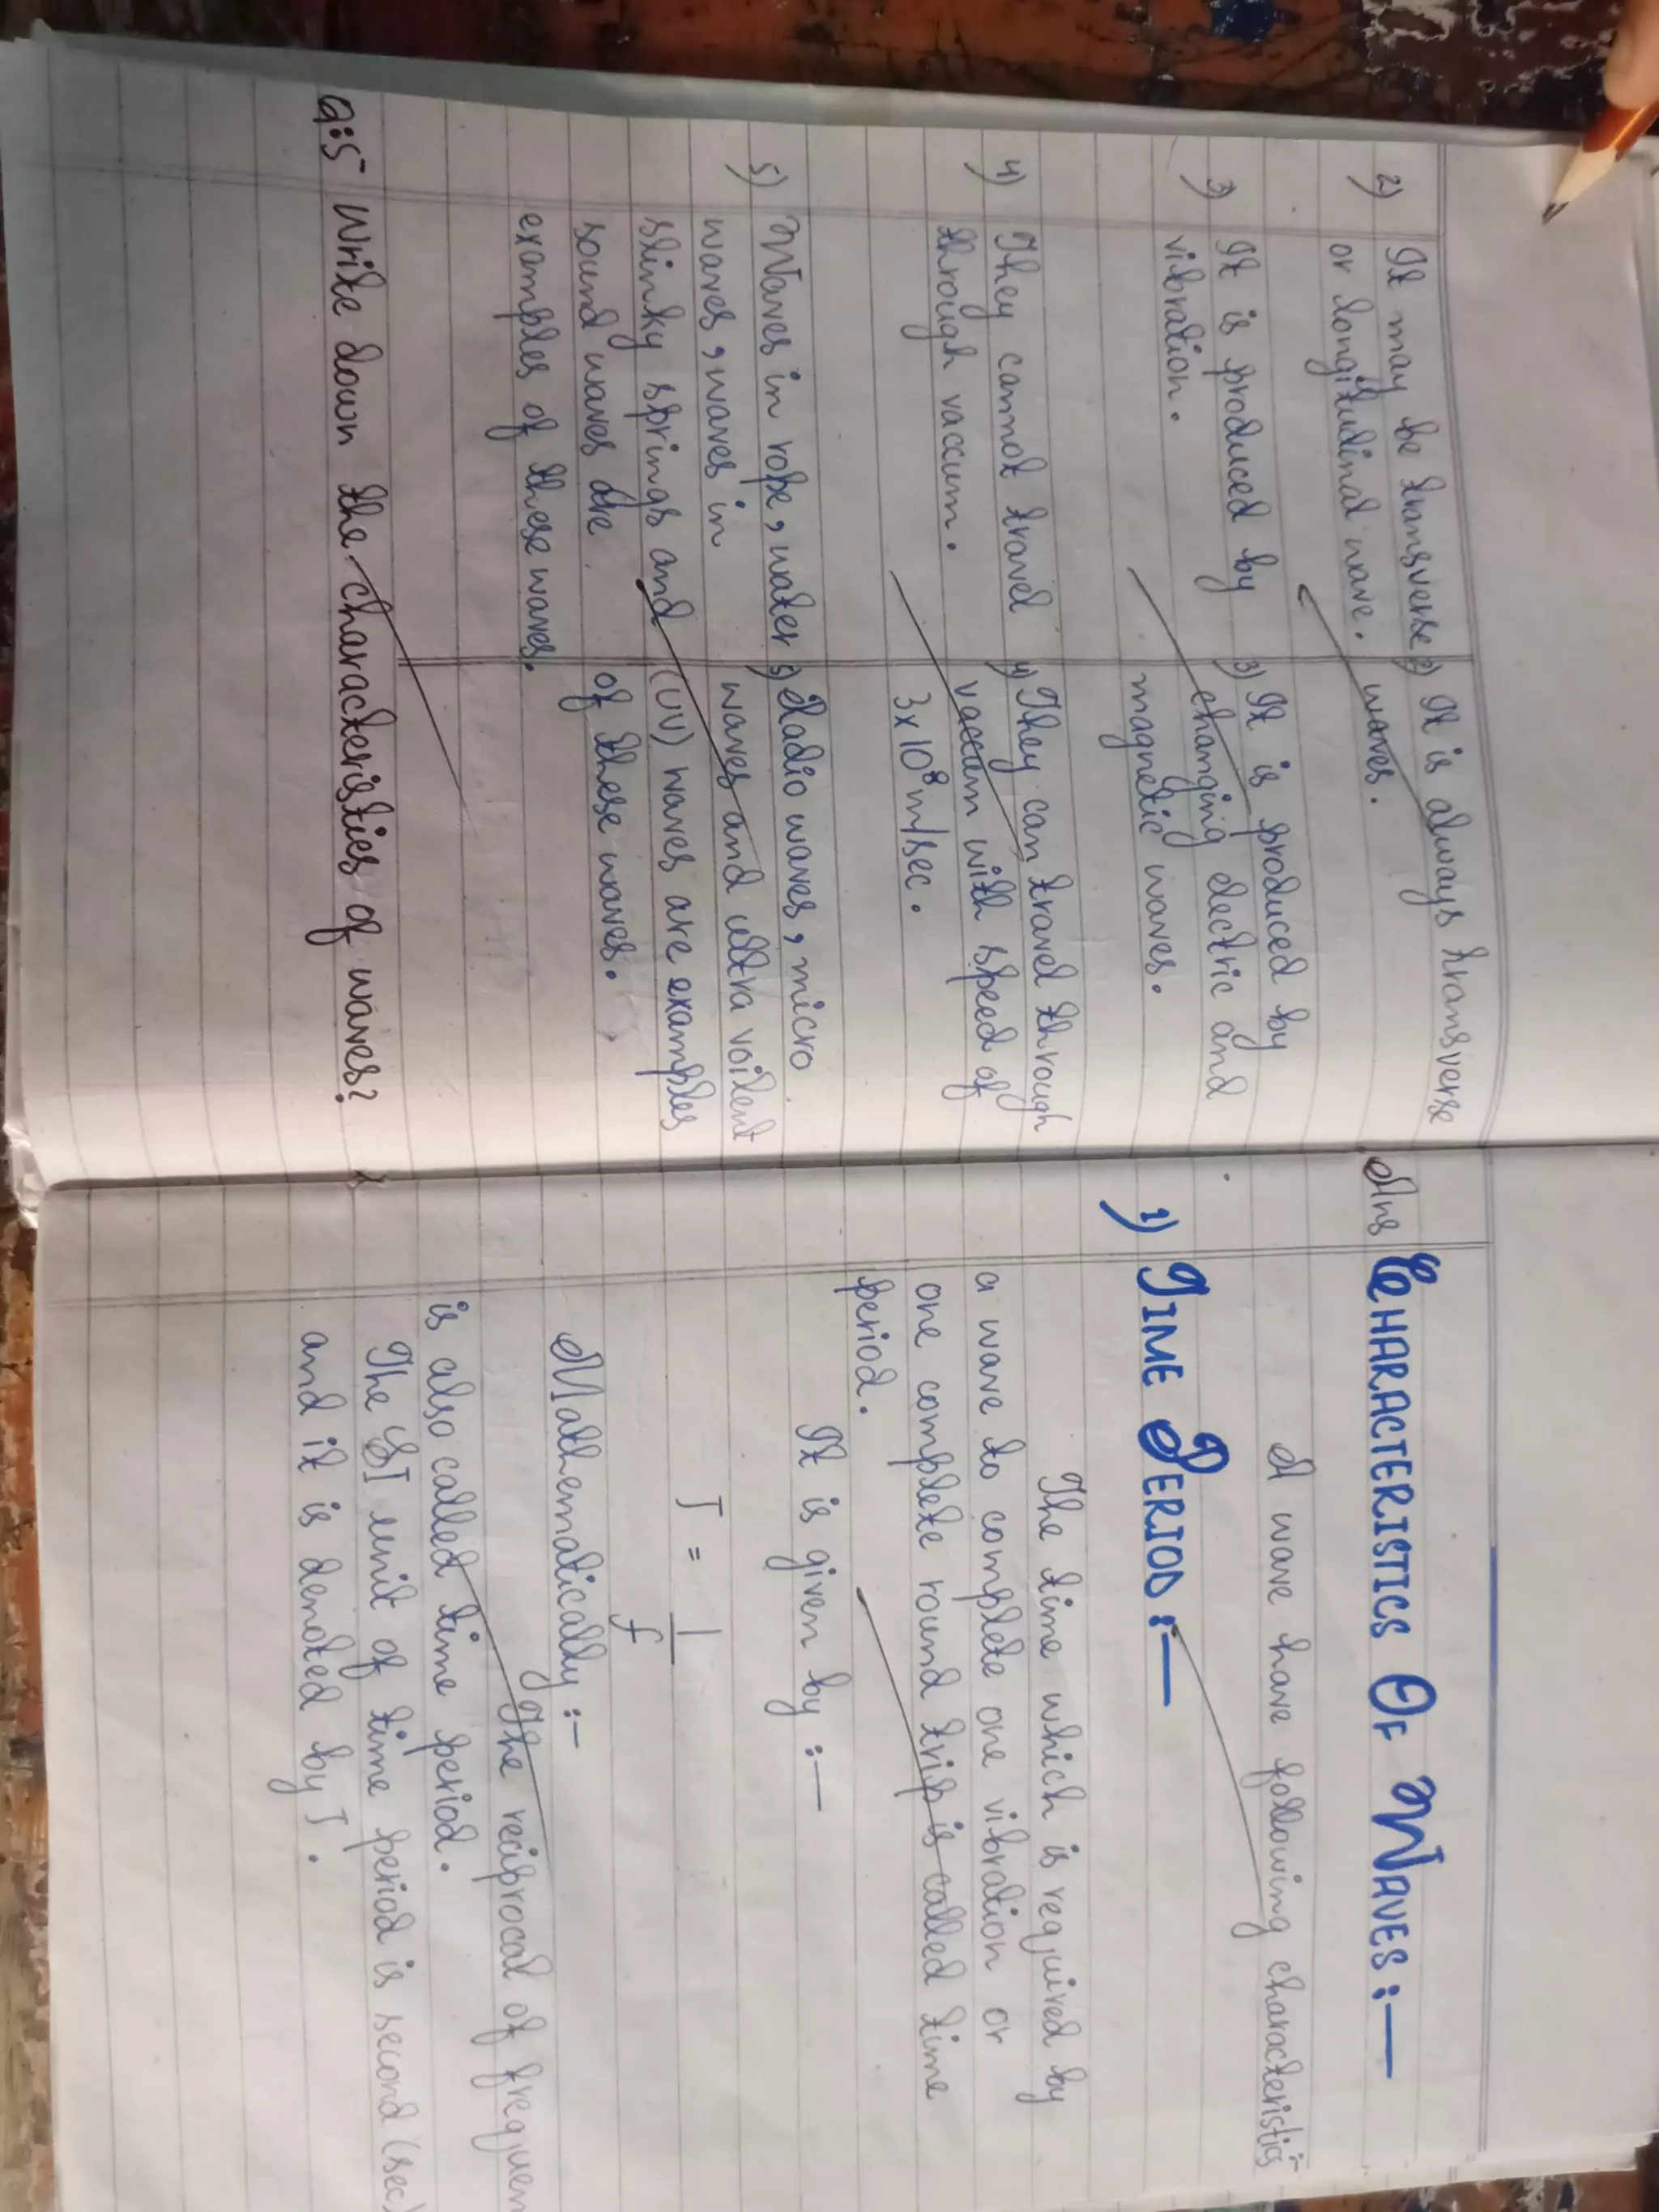 2) It may be transverse
or longitudinal wave.
3) It is produced by
vibration.
4) They cannot travel
through vaccum.
5) Waves in rope, water
waves, waves in
slinky springs and
sound waves are
examples of these waves.
2) It is always transverse
waves.
3) It is produced by
changing electric and
magnetic waves.
4) They can travel through
vaccum with speed of
3x10⁸m/sec.
5) Radio waves, micro
waves and ultra voilent
(UV) waves are examples
of these waves.
Q:5 Write down the characteristics of waves?
Ans CHARACTERISTICS OF WAVES:—
A wave have following characteristics:-
1) TIME PERIOD:—
The time which is required by
a wave to complete one vibration or
one complete round trip is called time
period.
It is given by :—
T = 1/f
Mathematically:-
The reciprocal of frequen
is also called time period.
The SI unit of time period is second (sec)
and it is denoted by T.